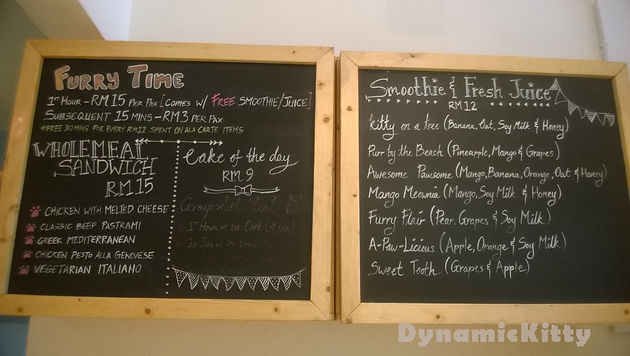 Furry Time
1ST Hour - RM15 Per Pax [Comes w/ FREE Smoothie/Juice]
Subsequent 15 Mins - RM3 Per Pax
*Free 30 mins for every RM12 spent on ala carte items
Wholemeal
Sandwich
RM15
Chicken with Melted Cheese
Classic Beef Pastrami
Greek Mediterranean
Chicken Pesto alla Genovese
Vegetarian Italiano
Cake of the day
RM 9
1st Hour at the Café
Smoothie & Fresh Juice
RM 12
Kitty on a tree (Banana, Oat, Soy Milk & Honey)
Purr by the Beach (Pineapple, Mango & Grapes)
Awesome Pawsome (Mango, Banana, Orange, Oat & Honey)
Mango Meownia (Mango, Soy Milk & Honey)
Furry Flair (Pear, Grapes & Soy Milk)
A-Paw-Licious (Apple, Orange & Soy Milk)
Sweet Tooth (Grapes & Apple)
DynamicKitty